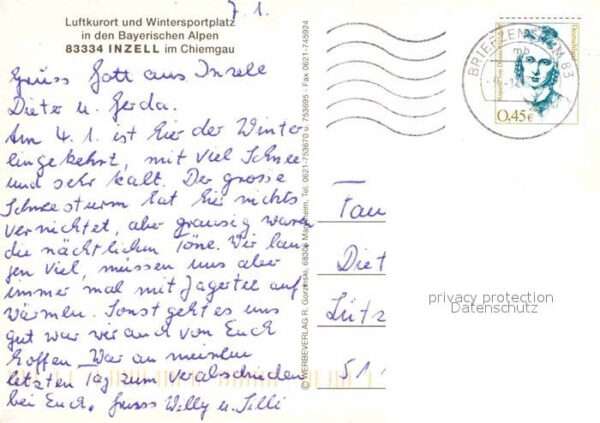 7.1.
Luftkurort und Wintersportplatz
in den Bayerischen Alpen
83334 INZELL im Chiemgau
Grüss Gott aus Inzell
Dieter u. Gerda.
Am 4.1. ist hier der Winter
eingekehrt, mit viel Schnee
und sehr kalt. Der grosse
Schneesturm hat hier nichts
vernichtet, aber grausig waren
die nächtlichen Töne. Wir lau-
fen viel, müssen uns aber
immer mal mit Jagertee auf
wärmen. Sonst geht es uns
gut was wir auch von Euch
hoffen. War an meinem
letzten Tag zum verabschieden
bei Euch. Gruss Willy u. Silli
© WERBEVERLAG R. Gorzinski, 68305 Mannheim, Tel. 0621-753670 u. 753695 · Fax 0621-745924
BRIEFZENTRUM 83
mb
Deutschland
0,45€
Fau
Diet
Lütz
511
privacy protection
Datenschutz